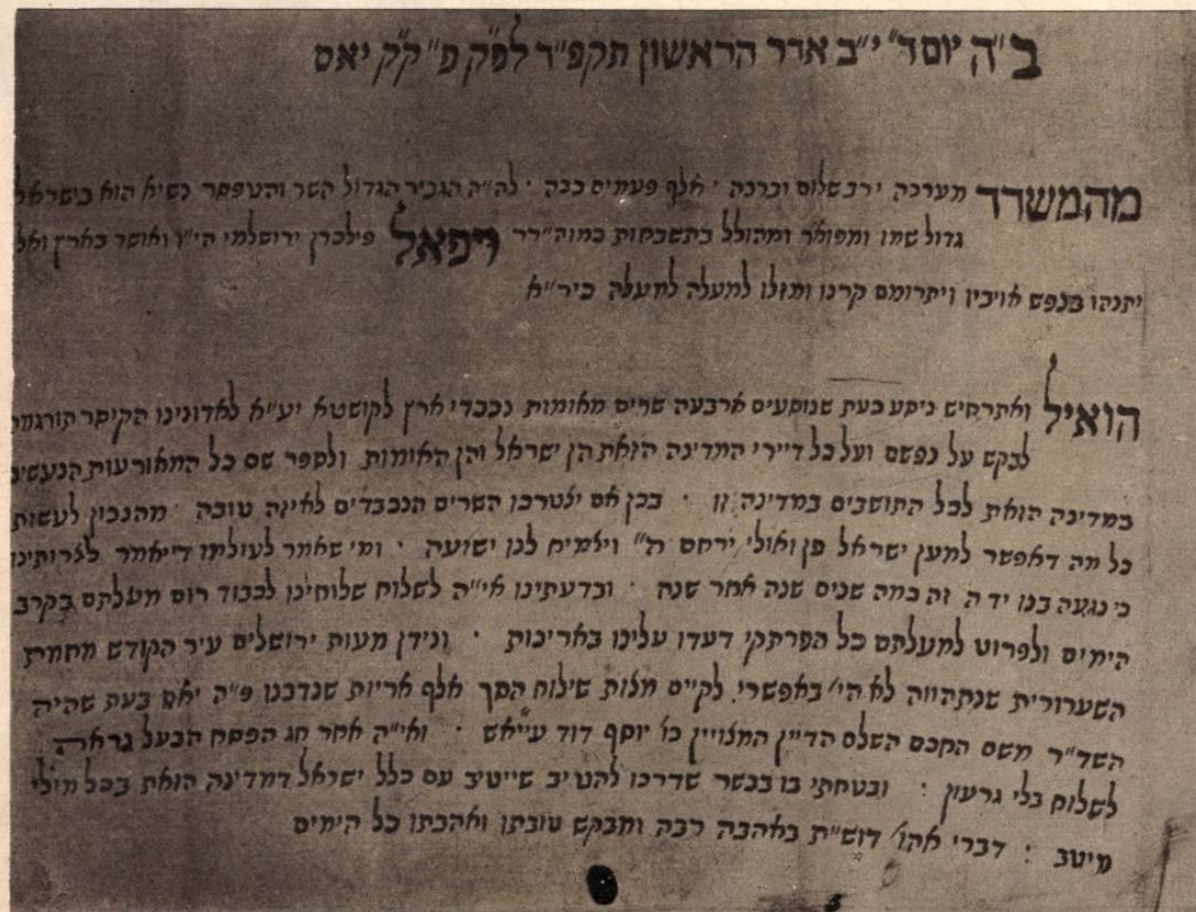 ב״ה יום ד״ י״ב אדר הראשון תקפ״ד לפ״ק פ״ ק״ק יאס
מהמשרד מערכה ירב שלום וברכה · אלף פעמים ככה · לה״ה הגביר הגדול השר והטפסר נשיא הוא בישראל
גדול שמו ומפואר ומהולל בתשבחות כמוה״רר רפאל ירושלמי הי״ו ואושר בארץ ואל
יתנהו בנפש אויביו ויתרומם קרנו ומזלו למעלה למעלה כיר״א
הואיל ואתרחיש ניסע כעת שנוסעים ארבעה שרים מאומות נכבדי ארץ לקושטא יע״א לאדונינו הקיסר
לבקש על נפשם ועל כל דיירי המדינה הזאת הן ישראל והן האומות ולספר שם כל המאורעות הנעשים
במדינה הזאת לכל התושבים במדינה זו · בכן אם יצטרכו השרים הנכבדים לאיזה טובה מהנכון לעשות
כל מה דאפשר למען ישראל פן ואולי ירחם ה״ ויצמיח לנו ישועה · ומי שאמר לעולמו די יאמר לצרותינו
כי נגעה בנו יד ה זה כמה שנים שנה אחר שנה · ובדעתינו אי״ה לשלוח שלוחינו לכבוד רום מעלתם בקרב
הימים ולפרוט למעלתם כל הפרתקי דעדו עלינו באריכות · ונידן מעות ירושלים עיר הקודש מחמת
השערורית שנתהווה לא הי׳ באפשרי לקיים מצות שילוח הסך אלף אריות שנדבנו פ״ה יאס בעת שהיה
השד״ר משם החכם השלם הדיין המצויין כו׳ יוסף דוד עייאש · ואי״ה אחר חג הפסח הבעל
לשלוח בלי גרעון : ובטחתי בו בכשר שדרכו להטיב שייטיב עם כלל ישראל דמדינה הזאת בכל מילי
מיטב : דברי אהו׳ דוש״ת באהבה רבה ומבקש טובתו ואהבתו כל הימים